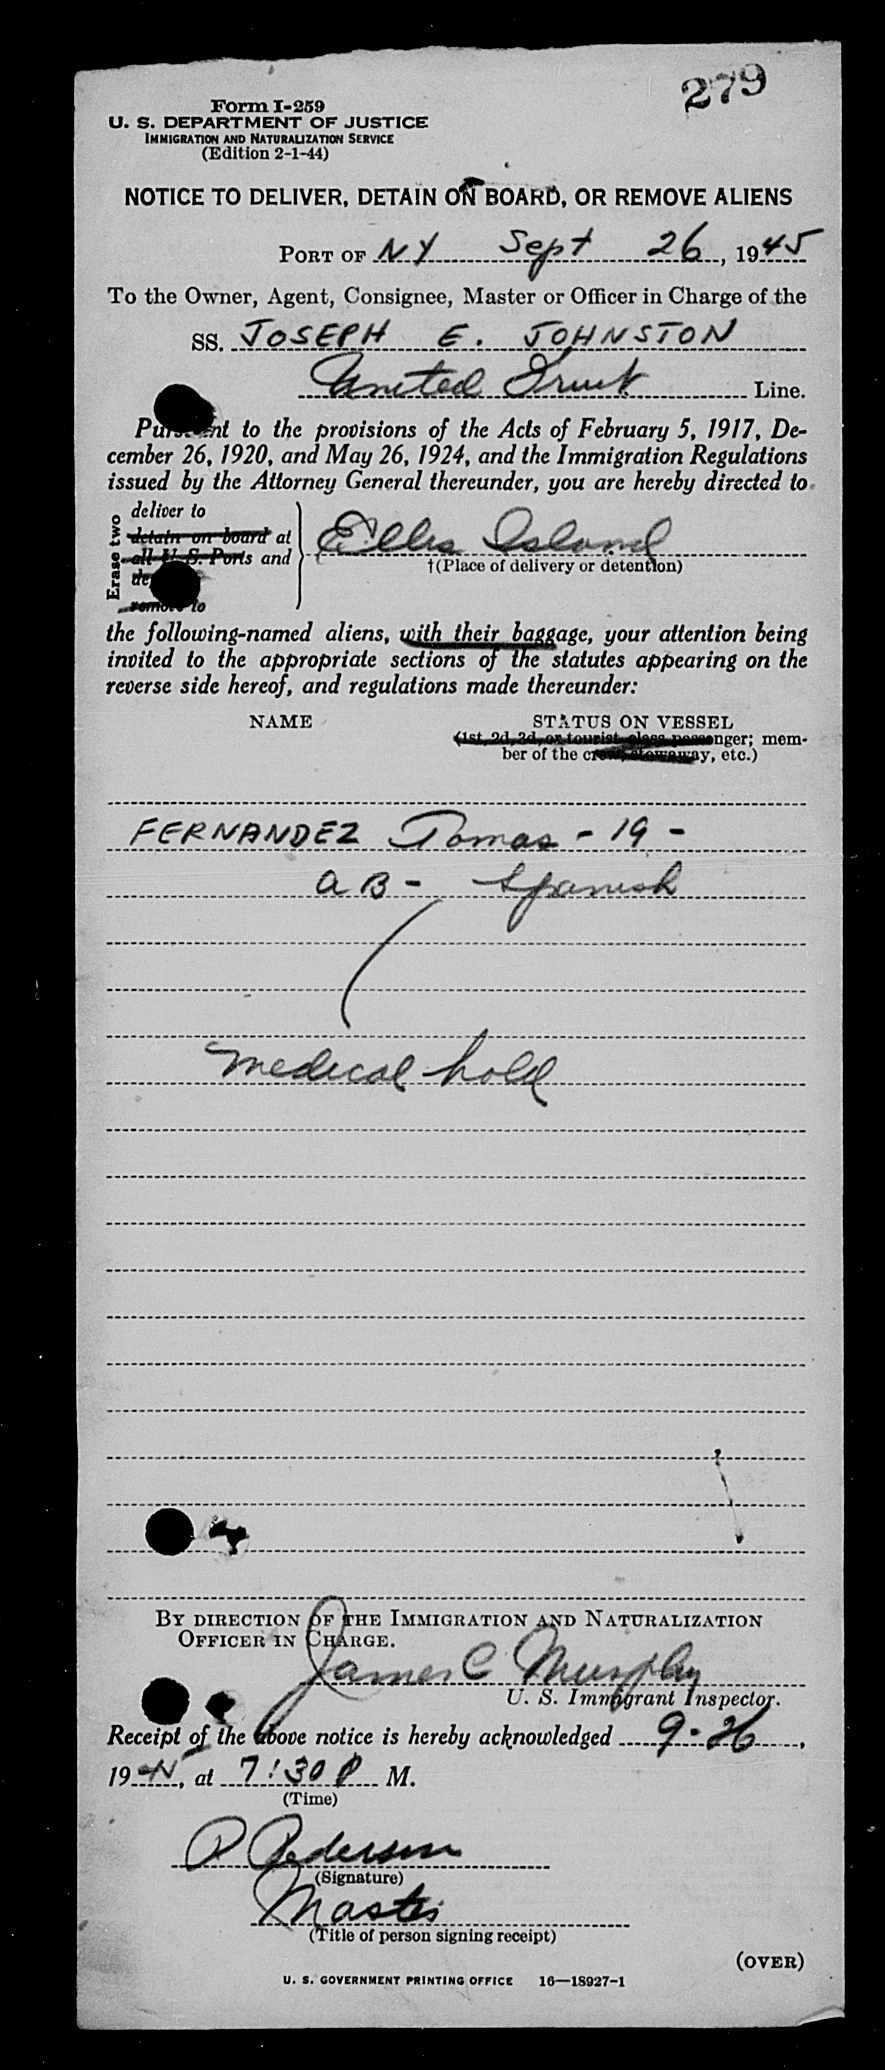 279
Form I-259
U. S. DEPARTMENT OF JUSTICE
IMMIGRATION AND NATURALIZATION SERVICE
(Edition 2-1-44)
NOTICE TO DELIVER, DETAIN ON BOARD, OR REMOVE ALIENS
PORT OF NY Sept 26, 1945
To the Owner, Agent, Consignee, Master or Officer in Charge of the
SS. JOSEPH E. JOHNSTON
United Fruit Line.
Pursuant to the provisions of the Acts of February 5, 1917, De-
cember 26, 1920, and May 26, 1924, and the Immigration Regulations
issued by the Attorney General thereunder, you are hereby directed to
Erase two
deliver to
detain on board at
all U. S. Ports and
remove to
Ellis Island
†(Place of delivery or detention)
the following-named aliens, with their baggage, your attention being
invited to the appropriate sections of the statutes appearing on the
reverse side hereof, and regulations made thereunder:
NAME STATUS ON VESSEL
(1st, 2d, 3d, or tourist class passenger; mem-
ber of the crew, stowaway, etc.)
FERNANDEZ Tomas - 19 -
AB - Spanish
Medical hold
BY DIRECTION OF THE IMMIGRATION AND NATURALIZATION
OFFICER IN CHARGE.
James C Murphy
U. S. Immigrant Inspector.
Receipt of the above notice is hereby acknowledged 9-26,
1945, at 7:30 P M.
(Time)
P Pederson
(Signature)
Master
(Title of person signing receipt)
(OVER)
U. S. GOVERNMENT PRINTING OFFICE 16—18927-1